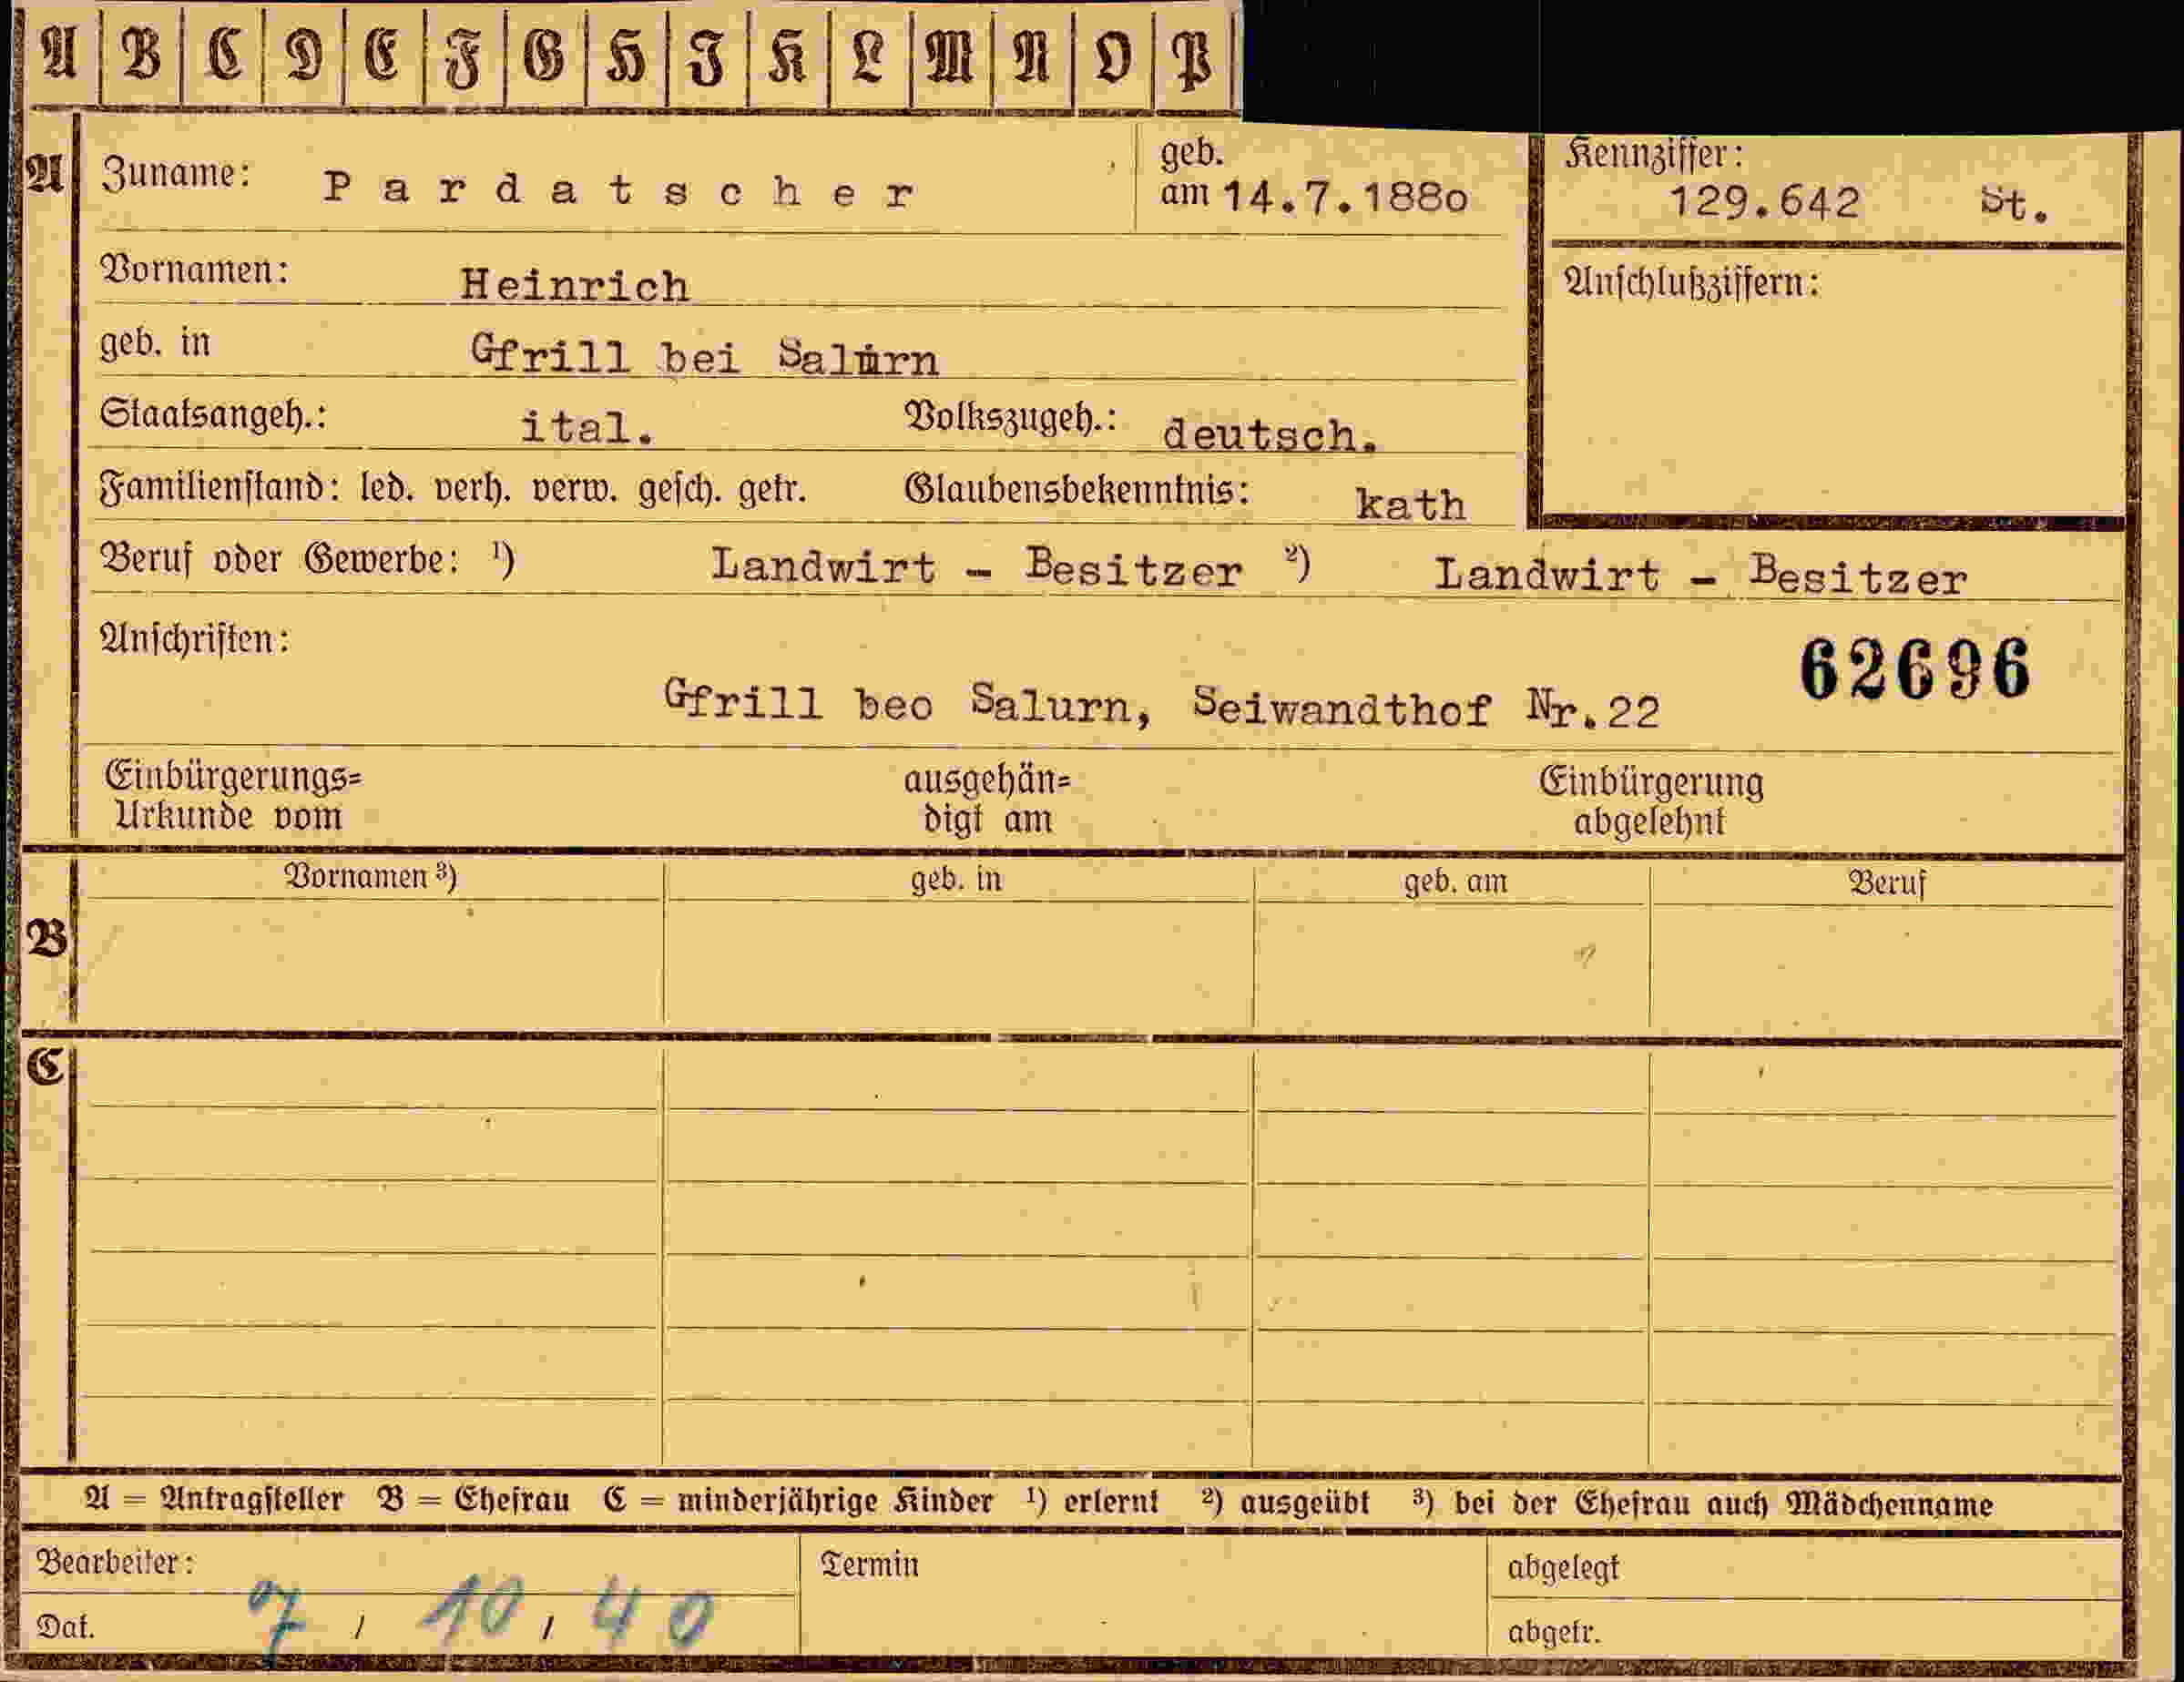 A B C D E F G H I K L M N O P
A Zuname: Pardatscher geb. am 14.7.1880 Kennziffer: 129.642 St.
Vornamen: Heinrich Anschlußziffern:
geb. in Gfrill bei Salurn
Staatsangeh.: ital. Volkszugeh.: deutsch.
Familienstand: led. verh. verw. gesch. getr. Glaubensbekenntnis: kath
Beruf oder Gewerbe: ¹) Landwirt - Besitzer ²) Landwirt - Besitzer
Anschriften: 62696
Gfrill beo Salurn, Seiwandthof Nr.22
Einbürgerungs= ausgehän= Einbürgerung
Urkunde vom digt am abgelehnt
Vornamen ³) geb. in geb. am Beruf
B
C
A = Antragsteller B = Ehefrau C = minderjährige Kinder ¹) erlernt ²) ausgeübt ³) bei der Ehefrau auch Mädchenname
Bearbeiter: Termin abgelegt
Dat. 7 / 10 / 40 abgetr.